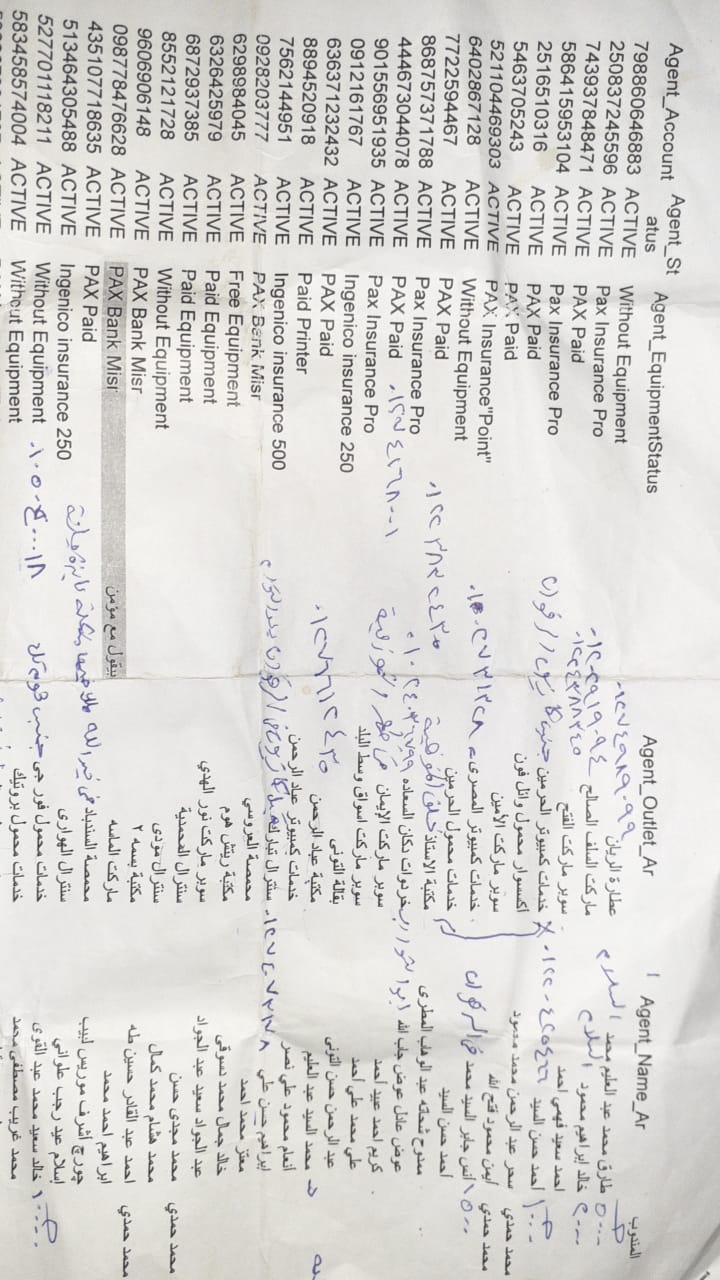 Agent_Account Agent_Status Agent_EquipmentStatus Agent_Outlet_Ar Agent_Name_Ar المندوب
798860646883 ACTIVE Without Equipment عطارة الريان ٠١٢٧٤٩٨٩٠٩٩ طارق محمد عبد العليم محمد السلام ٥٠٠٠
250837245596 ACTIVE Pax Insurance Pro ماركت السلف الصالح ٠١٢٠٢٩١٩٠٩٤ خالد إبراهيم محمود السلام ٢٠٠٠
743937848471 ACTIVE PAX Paid سوبر ماركت الفتح ٠١٢٢٤٣٨٨٣٤٥ احمد سعيد فهمي احمد
586415953104 ACTIVE Pax Insurance Pro خدمات كمبيوتر الحرمين جنب أحمد حسن السيد ٠١٢٢٠٤٢٥٤٦٦ ١٠٠٠
2516510316 ACTIVE PAX Paid أكسسوار محمول وائل فون سحر عبد الرحمن محمد محمود محمد حمدي
5463705243 ACTIVE PAX Paid سوبر ماركت الأمين أيمن محمود فتح الله محمد حمدي
521104469303 ACTIVE PAX Insurance"Point" خدمات كمبيوتر المصرى ٠١٠٠٢٧٣١٣٢٨ أنس جابر السيد محمد ١٥٠٠
6402867128 ACTIVE Without Equipment خدمات محمول الحرمين أحمد حسن السيد
7722594467 ACTIVE PAX Paid مكتبة الاستاذ خلف ٠١٢٢٣٨٣٢٤٣٥ ممدوح شحاته عبد الوهاب المطرى
868757371788 ACTIVE Pax Insurance Pro خردوات دكان السعاده ٠١٠٢٤٠٣٦٧٩٩ عوض عادل عوض جاب الله
444673044078 ACTIVE PAX Paid ٠١٢٧٤٢٦٨٠٠١ سوبر ماركت الإيمان كريم احمد عبيد أحمد
901556951935 ACTIVE Pax Insurance Pro سوبر ماركت اسواق وسط البلد علي محمد علي أحمد
0912161767 ACTIVE Ingenico insurance 250 بقالة التونى عبد الرحمن حسن التونى
636371232432 ACTIVE PAX Paid مكتبة عباد الرحمن ٠١٢٧٦٦١٢٤٣٥ محمد السيد عبد العليم
8894520918 ACTIVE Paid Printer خدمات كمبيوتر عباد الرحمن أنعام محمود علي نصر
7562144951 ACTIVE Ingenico insurance 500 سنترال تبارك إبراهيم حسن علي ٠١٢٧٤٠٧٣١٧٨
0928203777 ACTIVE PAX Bank Misr محمصة العروسي معتز محمد احمد
6298984045 ACTIVE Free Equipment مكتبة ريتش هوم خالد جمال محمد دسوقى
6326425979 ACTIVE Paid Equipment سوبر ماركت نور الهدي عبد الجواد سعيد عبد الجواد
6872937385 ACTIVE Paid Equipment سنترال المحمدية محمد مجدى حسن محمد حمدي
8552121728 ACTIVE Without Equipment سنترال مودى محمد هشام محمد كمال
9606906148 ACTIVE PAX Bank Misr مكتبة بسمه ٢ احمد عبد القادر حسين طه محمد حمدي
098778476628 ACTIVE PAX Bank Misr بيقول مع مؤمن ماركت الماسه ابراهيم احمد محمد
435107718635 ACTIVE PAX Paid محمصة السندباد جورج أشرف موريس لبيب
513464305488 ACTIVE Ingenico insurance 250 سنترال الهوارى إسلام عيد رجب علواني
527701118211 ACTIVE Without Equipment ٠١٠٥٠٤٠٠٠١٨ خدمات محمول فور جى جنب خالد سعيد محمد عبد القوى ١٠٠٠٠
583458574004 ACTIVE Without Equipment خدمات محمول بروتيك محمد غريب مصطفى محمد